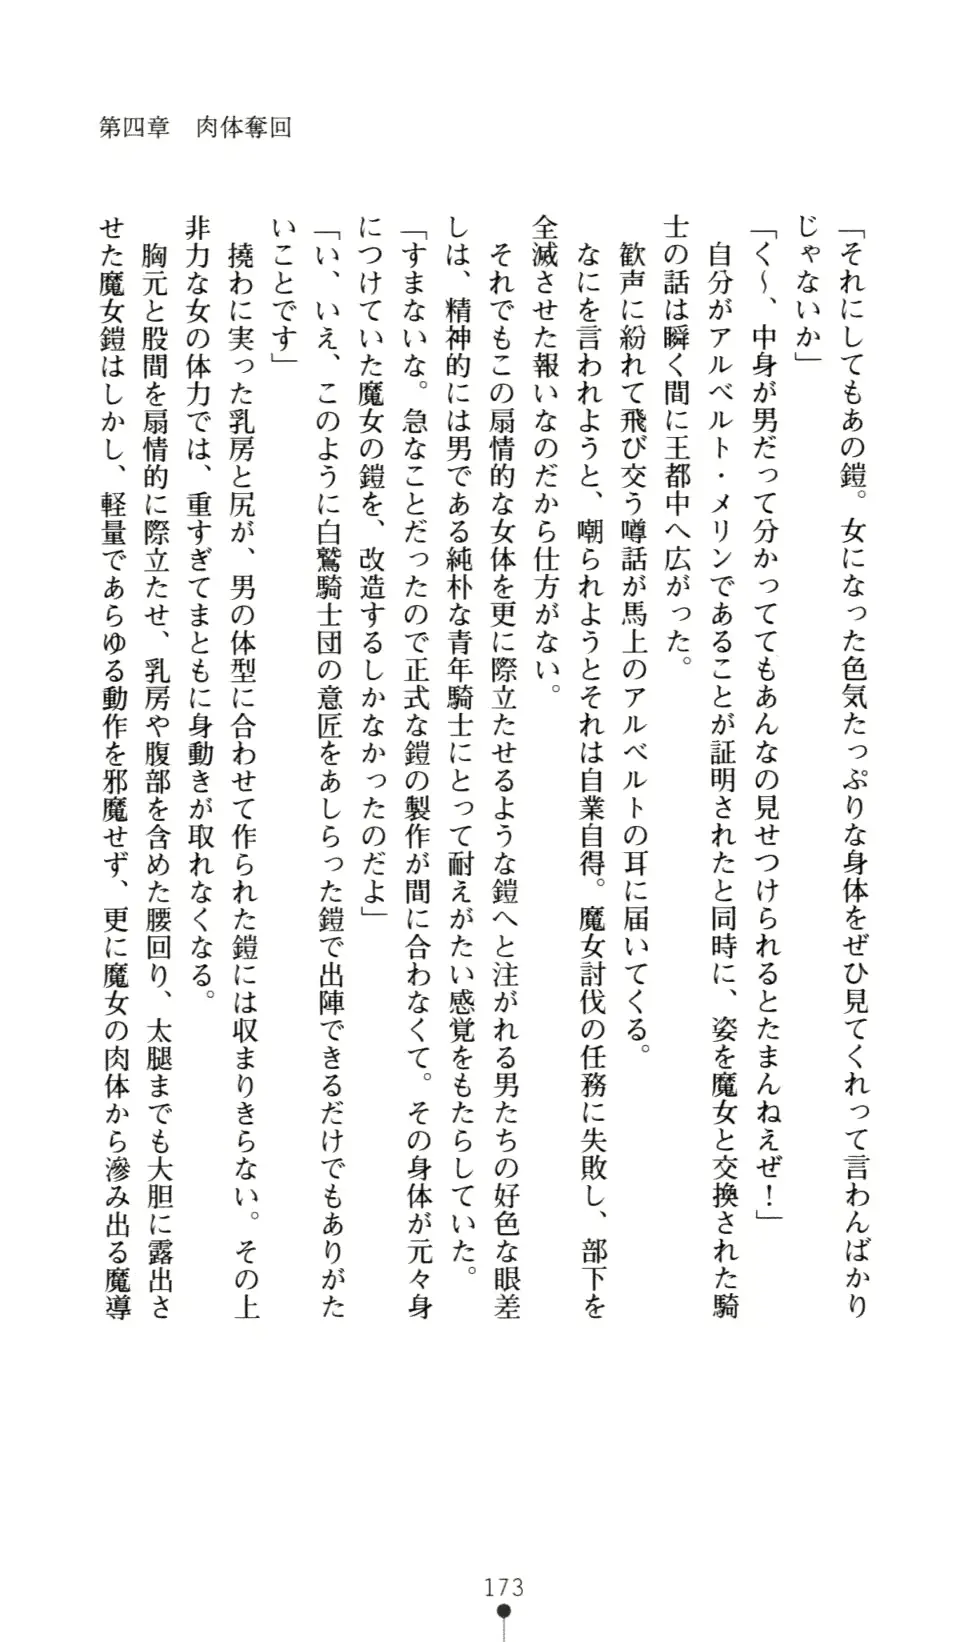 第四章　肉体奪回
「それにしてもあの鎧。女になった色気たっぷりな身体をぜひ見てくれって言わんばかり
じゃないか」
「く～、中身が男だって分かっててもあんなの見せつけられるとたまんねえぜ！」
　自分がアルベルト・メリンであることが証明されたと同時に、姿を魔女と交換された騎
士の話は瞬く間に王都中へ広がった。
　歓声に紛れて飛び交う噂話が馬上のアルベルトの耳に届いてくる。
　なにを言われようと、嘲られようとそれは自業自得。魔女討伐の任務に失敗し、部下を
全滅させた報いなのだから仕方がない。
　それでもこの扇情的な女体を更に際立たせるような鎧へと注がれる男たちの好色な眼差
しは、精神的には男である純朴な青年騎士にとって耐えがたい感覚をもたらしていた。
「すまないな。急なことだったので正式な鎧の製作が間に合わなくて。その身体が元々身
につけていた魔女の鎧を、改造するしかなかったのだよ」
「い、いえ、このように白鷲騎士団の意匠をあしらった鎧で出陣できるだけでもありがた
いことです」
　撓わに実った乳房と尻が、男の体型に合わせて作られた鎧には収まりきらない。その上
非力な女の体力では、重すぎてまともに身動きが取れなくなる。
　胸元と股間を扇情的に際立たせ、乳房や腹部を含めた腰回り、太腿までも大胆に露出さ
せた魔女鎧はしかし、軽量であらゆる動作を邪魔せず、更に魔女の肉体から滲み出る魔導
173